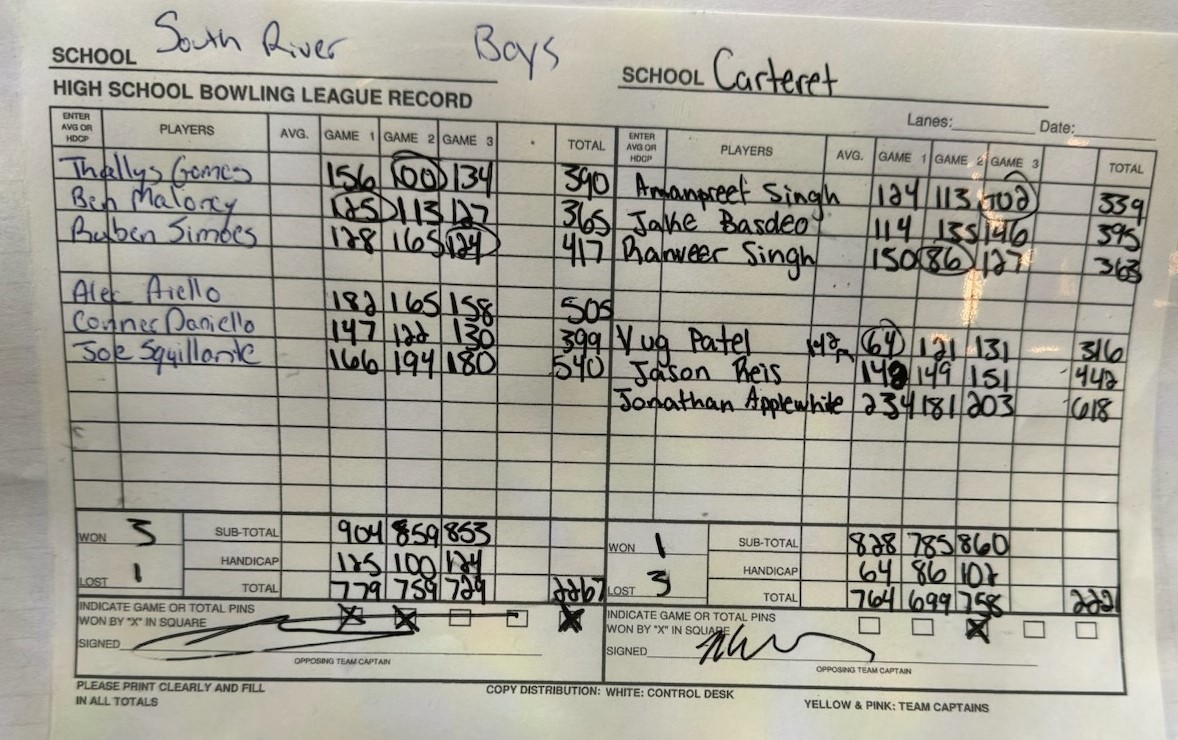 SCHOOL South River Boys SCHOOL Carteret
HIGH SCHOOL BOWLING LEAGUE RECORD
Lanes: Date:
ENTER AVG OR HDCP PLAYERS AVG. GAME 1 GAME 2 GAME 3 TOTAL ENTER AVG OR HDCP PLAYERS AVG. GAME 1 GAME 2 GAME 3 TOTAL
Thallys Gomes 156 100 134 390 Amanpreet Singh 124 113 102 339
Ben Maloney 125 113 127 365 Jake Basdeo 114 135 146 395
Ruben Simoes 128 165 124 417 Ranveer Singh 150 86 127 363
Alec Aiello 182 165 158 505
Conner Daniello 147 122 130 399 Vug Patel 64 121 131 316
Joe Squillante 166 194 180 540 Jason Reis 142 149 151 442
Jonathan Applewhite 234 181 203 618
WON 3 SUB-TOTAL 904 859 853 WON 1 SUB-TOTAL 828 785 860
LOST 1 HANDICAP 125 100 124 LOST 3 HANDICAP 64 86 102
TOTAL 779 759 729 2267 TOTAL 764 699 758 2221
INDICATE GAME OR TOTAL PINS WON BY "X" IN SQUARE X X X INDICATE GAME OR TOTAL PINS WON BY "X" IN SQUARE X
SIGNED SIGNED
OPPOSING TEAM CAPTAIN OPPOSING TEAM CAPTAIN
PLEASE PRINT CLEARLY AND FILL IN ALL TOTALS
COPY DISTRIBUTION: WHITE: CONTROL DESK YELLOW & PINK: TEAM CAPTAINS